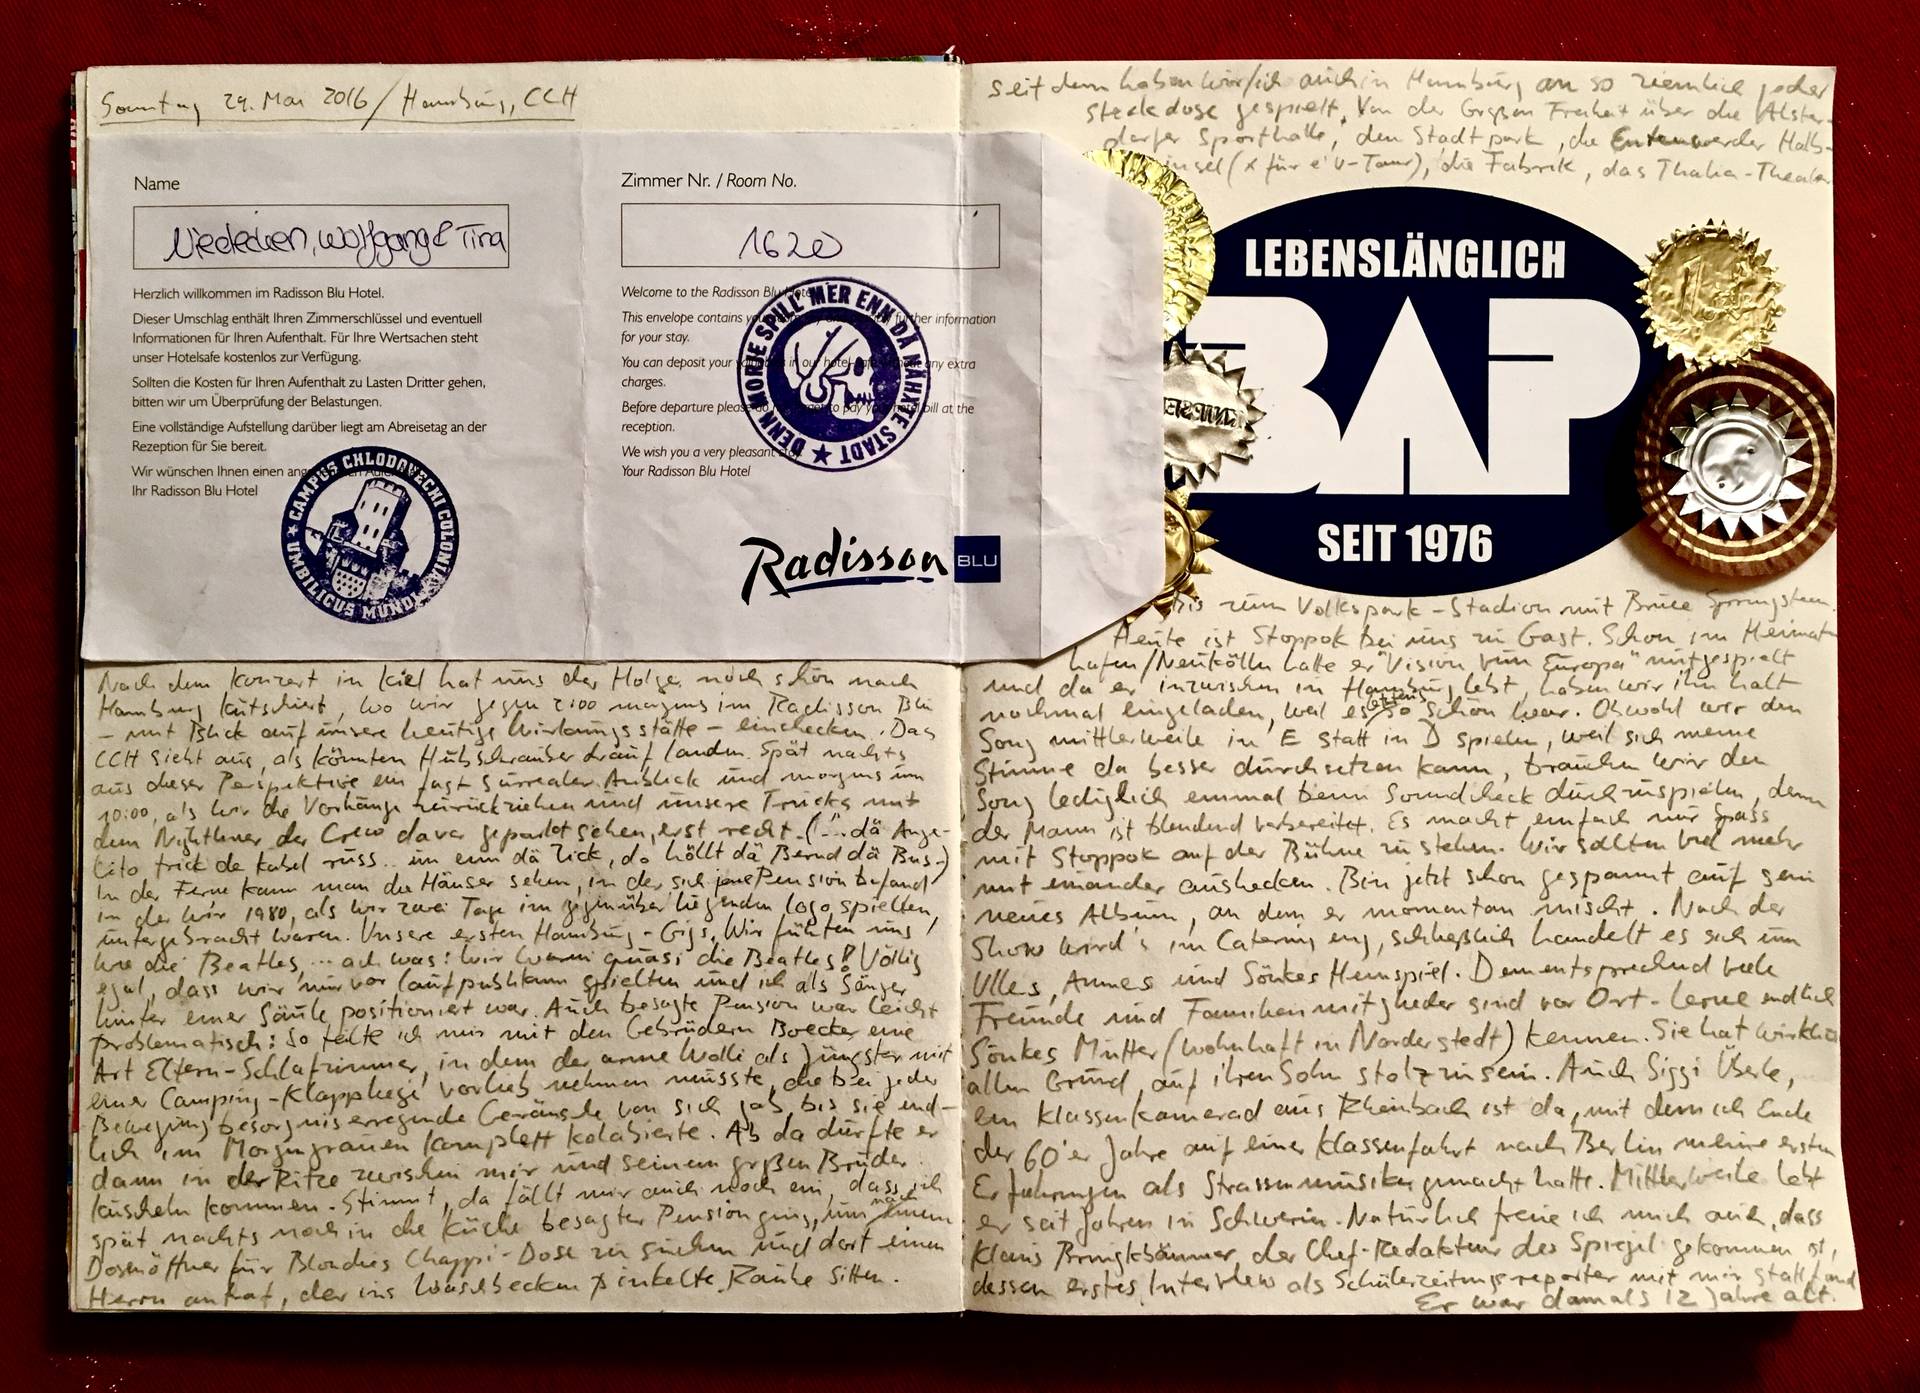 Sonntag 29. Mai 2016 / Hamburg, CCH
Name
Niedecken, Wolfgang & Tina
Herzlich willkommen im Radisson Blu Hotel.
Dieser Umschlag enthält Ihren Zimmerschlüssel und eventuell
Informationen für Ihren Aufenthalt. Für Ihre Wertsachen steht
unser Hotelsafe kostenlos zur Verfügung.
Sollten die Kosten für Ihren Aufenthalt zu Lasten Dritter gehen,
bitten wir um Überprüfung der Belastungen.
Eine vollständige Aufstellung darüber liegt am Abreisetag an der
Rezeption für Sie bereit.
Wir wünschen Ihnen einen
Ihr Radisson Blu Hotel
CAMPUS CHLODOVECHI COLONIA
★ UMBILICUS MUNDI ★
Zimmer Nr. / Room No.
1620
Welcome to the Radisson Blu
This envelope contains further information
for your stay.
You can deposit your in our hotel any extra
charges.
Before departure please to pay your hotel bill at the
reception.
We wish you a very pleasant
Your Radisson Blu Hotel
DENN MORJE SPILL' MER ENN DÄ NÄHXTE STADT ★
Radisson BLU
Nach dem Konzert in Kiel hat uns der Holger noch schön nach
Hamburg kutschiert, wo wir gegen 2:00 morgens im Radisson Blu
- mit Blick auf unsere heutige Wirkungsstätte - einchecken. Das
CCH sieht aus, als könnten Hubschrauber drauf landen. Spät nachts
aus dieser Perspektive ein fast surrealer Anblick und morgens um
10:00, als wir die Vorhänge zurückziehen und unsere Trucks mit
dem Nightliner der Crew davor geparkt sehen, erst recht. ("... dä Ange-
lito trick de Kabel russ.. un enn dä Zick, do höllt dä Bernd dä Bus.")
In der Ferne kann man die Häuser sehen, in der sich jene Pension befand,
in der wir 1980, als wir zwei Tage im gegenüber liegenden Logo spielten,
untergebracht waren. Unsere ersten Hamburg-Gigs. Wir fühlten uns
wie die Beatles, ... ach was: wir waren quasi die Beatles! Völlig
egal, dass wir nur vor Laufpublikum spielten und ich als Sänger
hinter einer Säule positioniert war. Auch besagte Pension war leicht
problematisch: So teilte ich mir mit den Gebrüdern Boecker eine
Art Eltern-Schlafzimmer, in dem der arme Wolli als Jüngster mit
einer Camping-Klappliege vorlieb nehmen musste, die bei jeder
Bewegung besorgniserregende Geräusche von sich gab, bis sie end-
lich im Morgengrauen komplett kolabierte. Ab da durfte er
dann in der Ritze zwischen mir und seinem großen Bruder
kuscheln kommen. Stimmt, da fällt mir auch noch ein, dass ich
spät nachts noch in die Küche besagter Pension ging, um nach einem
Dosenöffner für Blondies Chappi-Dose zu suchen und dort einen
Herrn antraf, der ins Waschbecken pinkelte. Rauhe Sitten.
seit dem haben wir/ich auch in Hamburg an so ziemlich jeder
Steckdose gespielt. Von der Großen Freiheit über die Alster-
dorfer Sporthalle, den Stadtpark, die Entenwerder Halb-
insel (x für e' U-Tour), die Fabrik, das Thalia-Theater
LEBENSLÄNGLICH
BAP
SEIT 1976
bis zum Volkspark-Stadion mit Bruce Springsteen.
Heute ist Stoppok bei uns zu Gast. Schon im Heimat-
hafen/Neukölln hatte er "Vision vun Europa" mitgespielt
und da er inzwischen in Hamburg lebt, haben wir ihn halt
nochmal eingeladen, weil es so schön war. Obwohl wir den
Song mittlerweile in E statt in D spielen, weil sich meine
Stimme da besser durchsetzen kann, brauchen wir den
Song lediglich einmal beim Soundcheck durchzuspielen, denn
der Mann ist blendend vorbereitet. Es macht einfach nur Spass
mit Stoppok auf der Bühne zu stehen. Wir sollten viel mehr
mit einander aushecken. Bin jetzt schon gespannt auf sein
neues Album, an dem er momentan mischt. Nach der
Show wird's im Catering eng, schließlich handelt es sich um
Ulles, Annes und Sönkes Heimspiel. Dementsprechend viele
Freunde und Familienmitglieder sind vor Ort - Lerne endlich
Sönkes Mutter (wohnhaft in Norderstedt) kennen. Sie hat wirklich
allen Grund, auf ihren Sohn stolz zu sein. Auch Siggi Überle,
ein Klassenkamerad aus Rheinbach ist da, mit dem ich Ende
der 60'er Jahre auf einer Klassenfahrt nach Berlin meine ersten
Erfahrungen als Strassenmusiker gemacht hatte. Mittlerweile lebt
er seit Jahren in Schwerin. Natürlich freue ich mich auch, dass
Klaus Brinkbäumer, der Chef-Redakteur des Spiegel gekommen ist,
dessen erstes Interview als Schülerzeitungsreporter mit mir stattfand
Er war damals 12 Jahre alt.